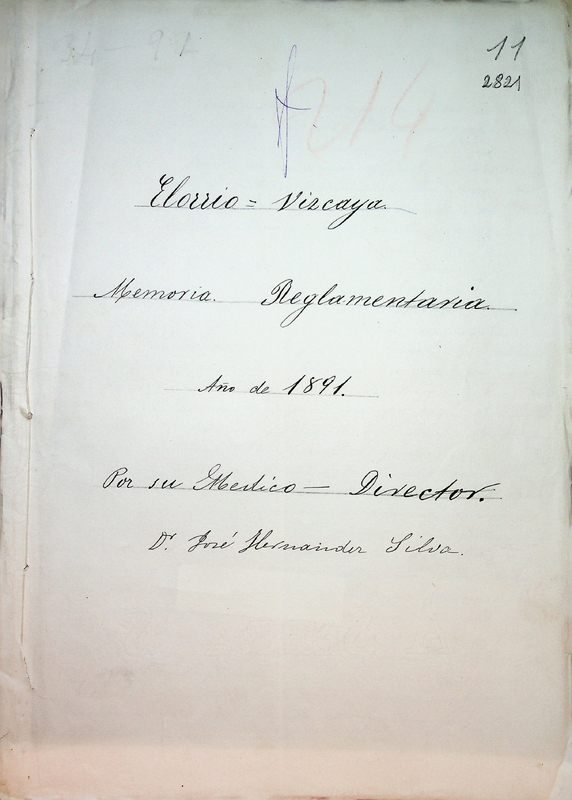 34 - 91
11
2821
214
Elorrio = Vizcaya.
Memoria. Reglamentaria.
Año de 1891.
Por su Medico — Director.
Dr. José Hernandez Silva.